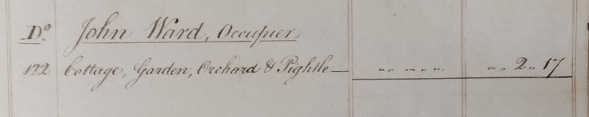 Do. John Ward, Occupier,
122 Cottage, Garden, Orchard & Pightle — " " " " " " 2 " 17